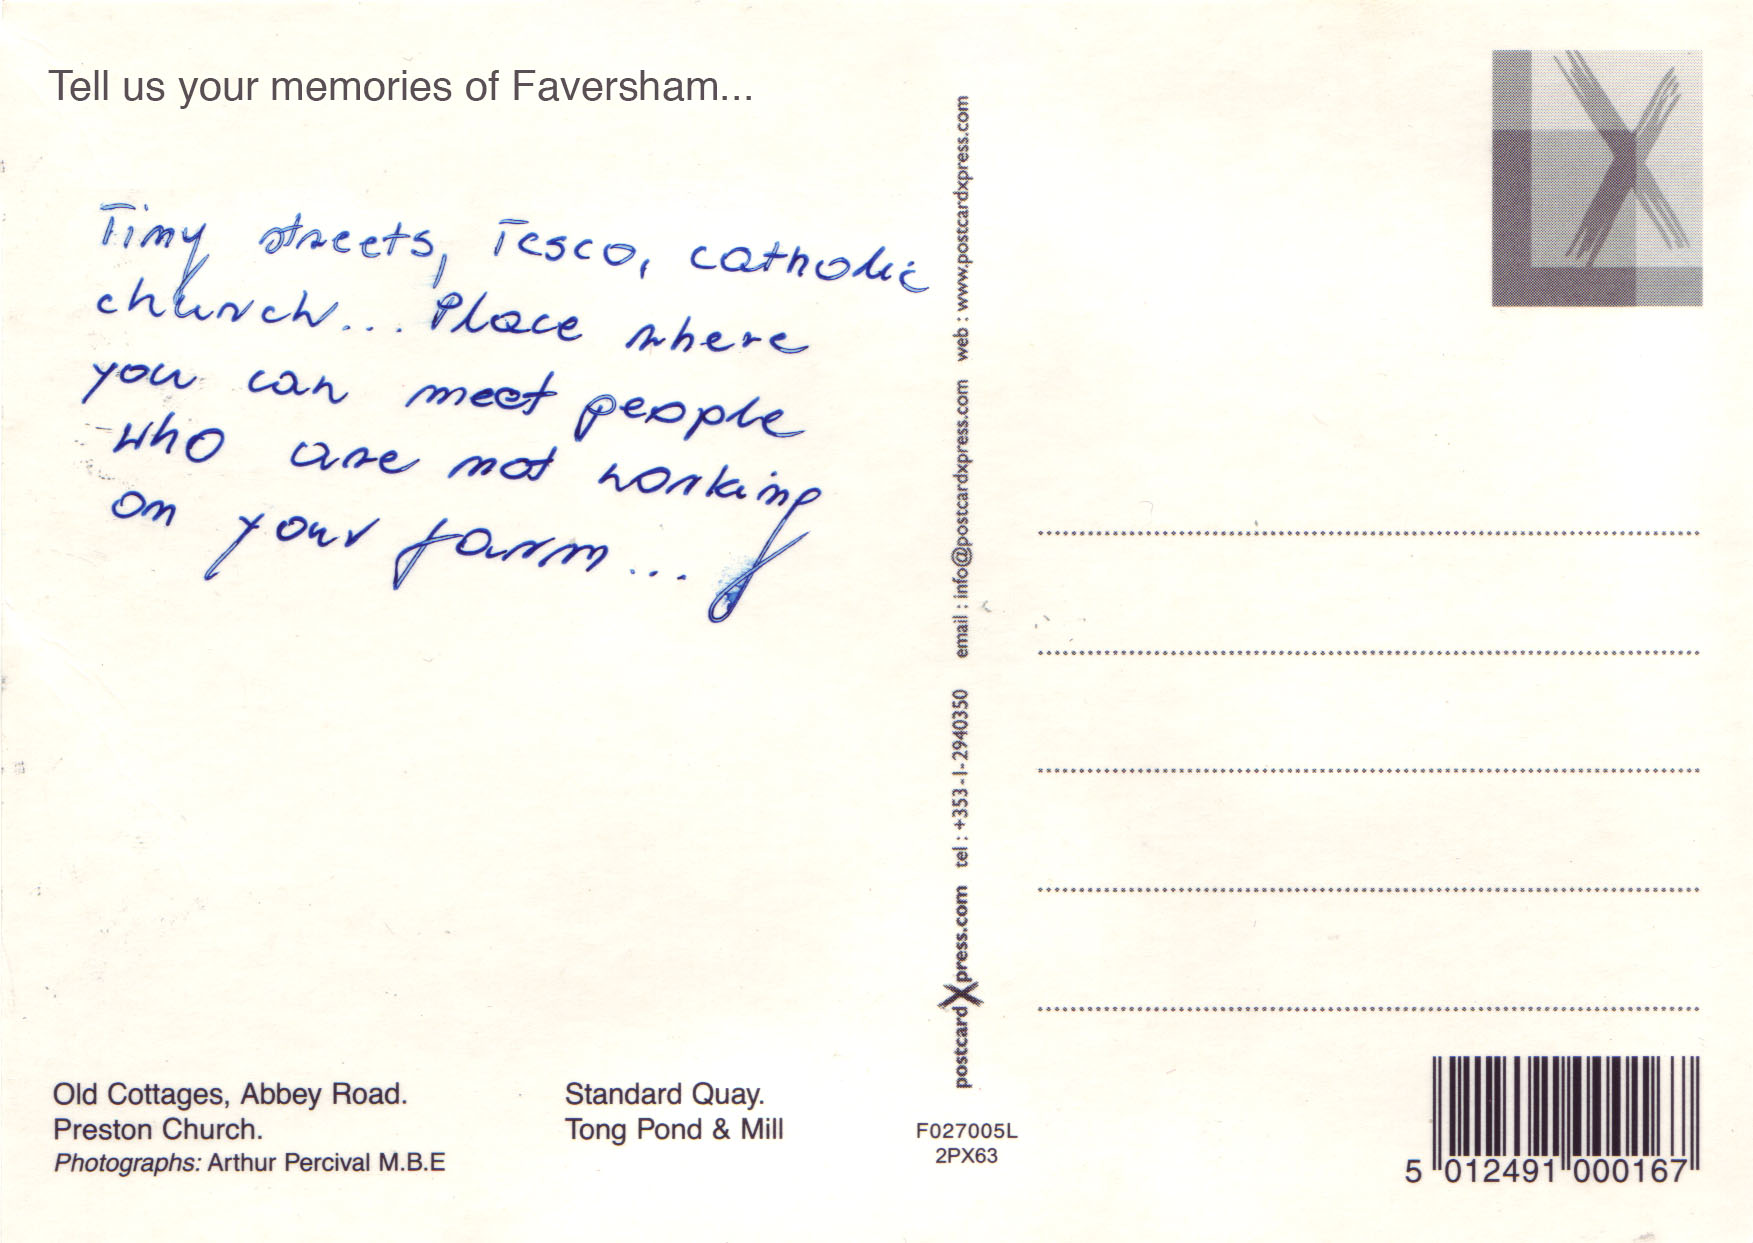 Tell us your memories of Faversham...
Tiny streets, Tesco, catholic
church... Place where
you can meet people
who are not working
on your farm...
Old Cottages, Abbey Road.
Preston Church.
Photographs: Arthur Percival M.B.E
Standard Quay.
Tong Pond & Mill
postcardXpress.com tel : +353-1-2940350 email : info@postcardxpress.com web : www.postcardxpress.com
F027005L
2PX63
LX
5 012491 000167